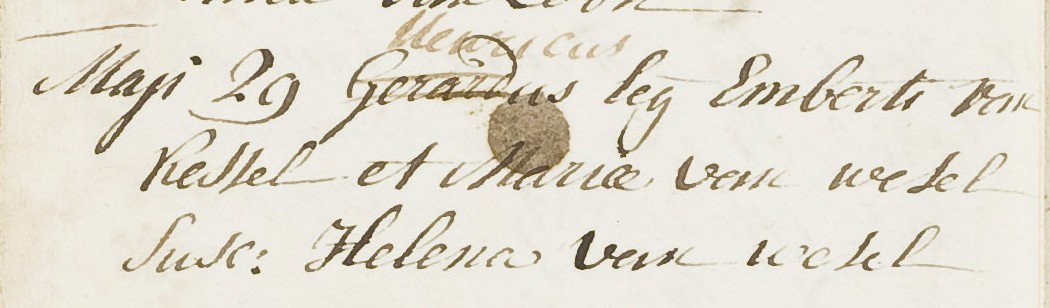 van Loon
Henricus
Maji 29 Gerardus leg Emberti van
Kessel et Mariæ van wesel
Susc: Helena van wesel